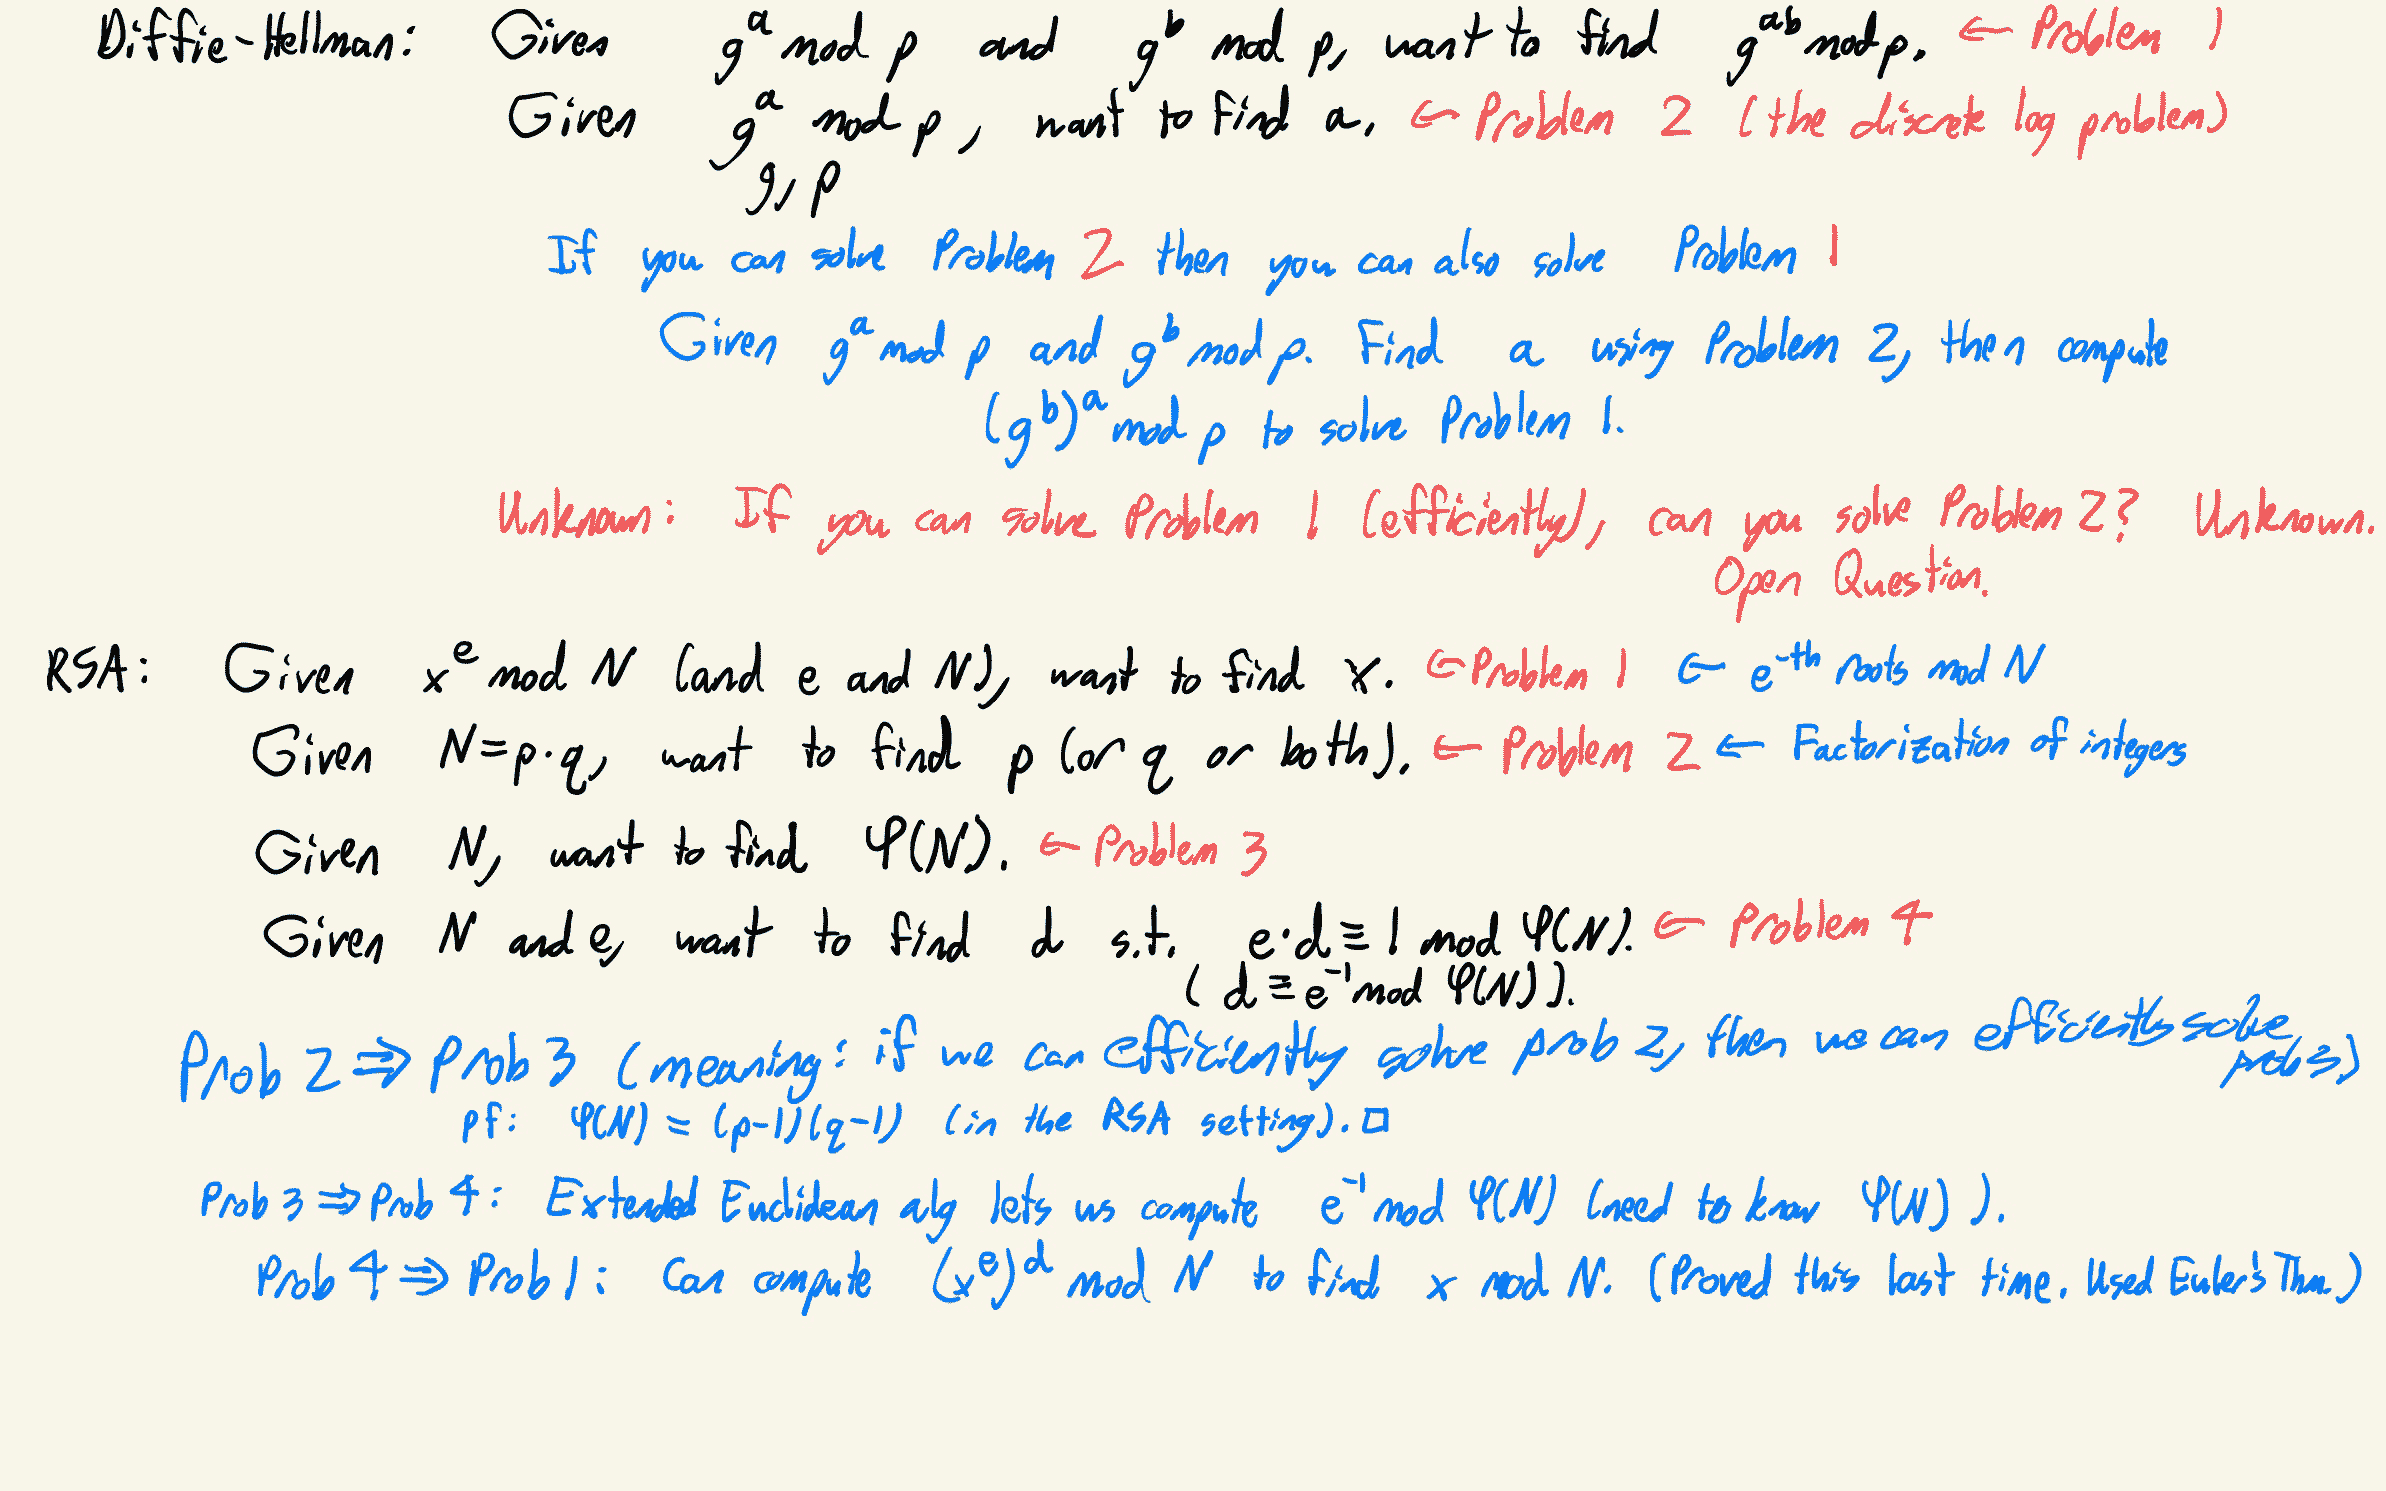 Diffie-Hellman: Given g^a mod p and g^b mod p, want to find g^ab mod p. ← Problem 1
Given g^a mod p, want to find a. ← Problem 2 (the discrete log problem)
g, p
If you can solve Problem 2 then you can also solve Problem 1
Given g^a mod p and g^b mod p. Find a using Problem 2, then compute
(g^b)^a mod p to solve Problem 1.
Unknown: If you can solve Problem 1 (efficiently), can you solve Problem 2? Unknown.
Open Question.
RSA: Given x^e mod N (and e and N), want to find x. ← Problem 1 ← e^-th roots mod N
Given N=p·q, want to find p (or q or both). ← Problem 2 ← Factorization of integers
Given N, want to find φ(N). ← Problem 3
Given N and e, want to find d s.t. e·d ≡ 1 mod φ(N). ← Problem 4
(d ≡ e^-1 mod φ(N)).
Prob 2 ⇒ Prob 3 (meaning: if we can efficiently solve prob 2, then we can efficiently solve
prob 3)
pf: φ(N) = (p-1)(q-1) (in the RSA setting). □
Prob 3 ⇒ Prob 4: Extended Euclidean alg lets us compute e^-1 mod φ(N) (need to know φ(N)).
Prob 4 ⇒ Prob 1: Can compute (x^e)^d mod N to find x mod N. (Proved this last time. Used Euler's Thm.)